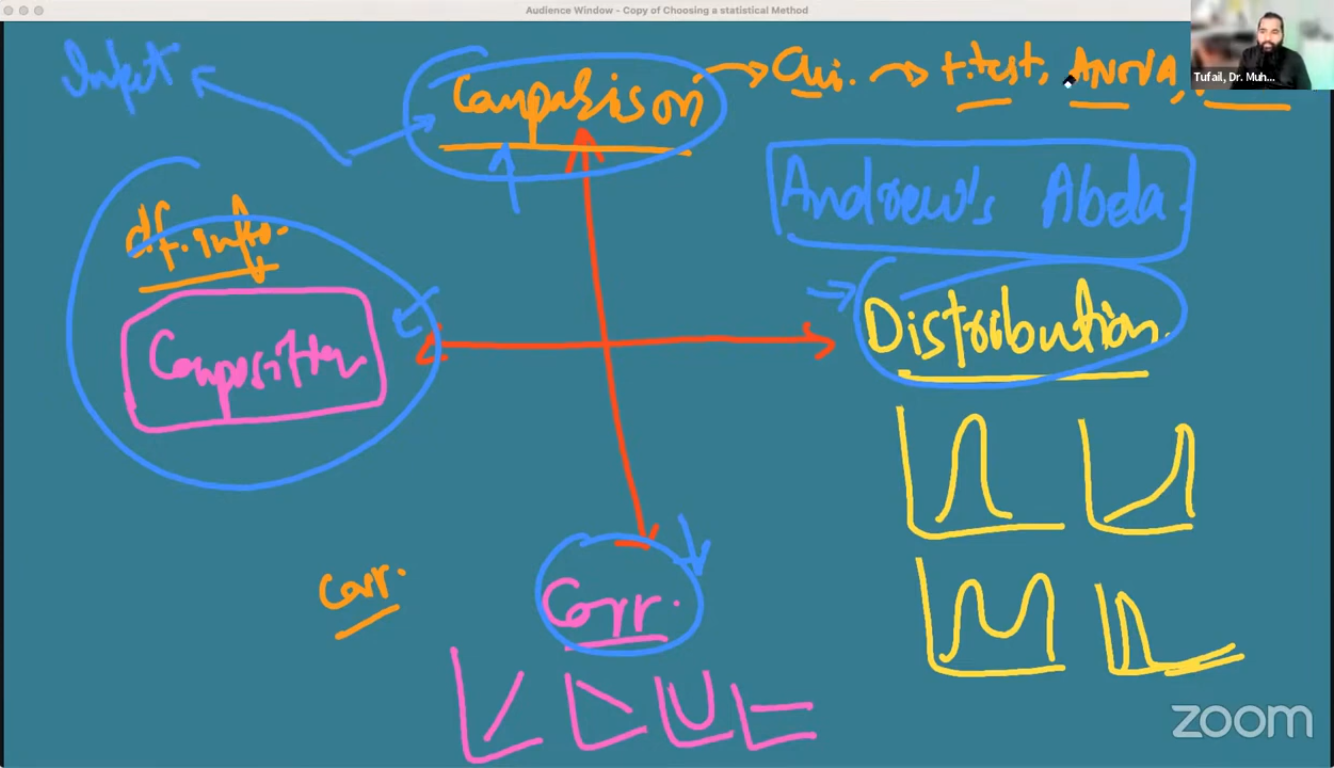 Audience Window - Copy of Choosing a statistical Method
Tufail, Dr. Muh...
Comparison
Chi. t.test, ANOVA,
Andrew's Abela.
df.info.
Composition
Distribution.
Corr.
Corr.
zoom